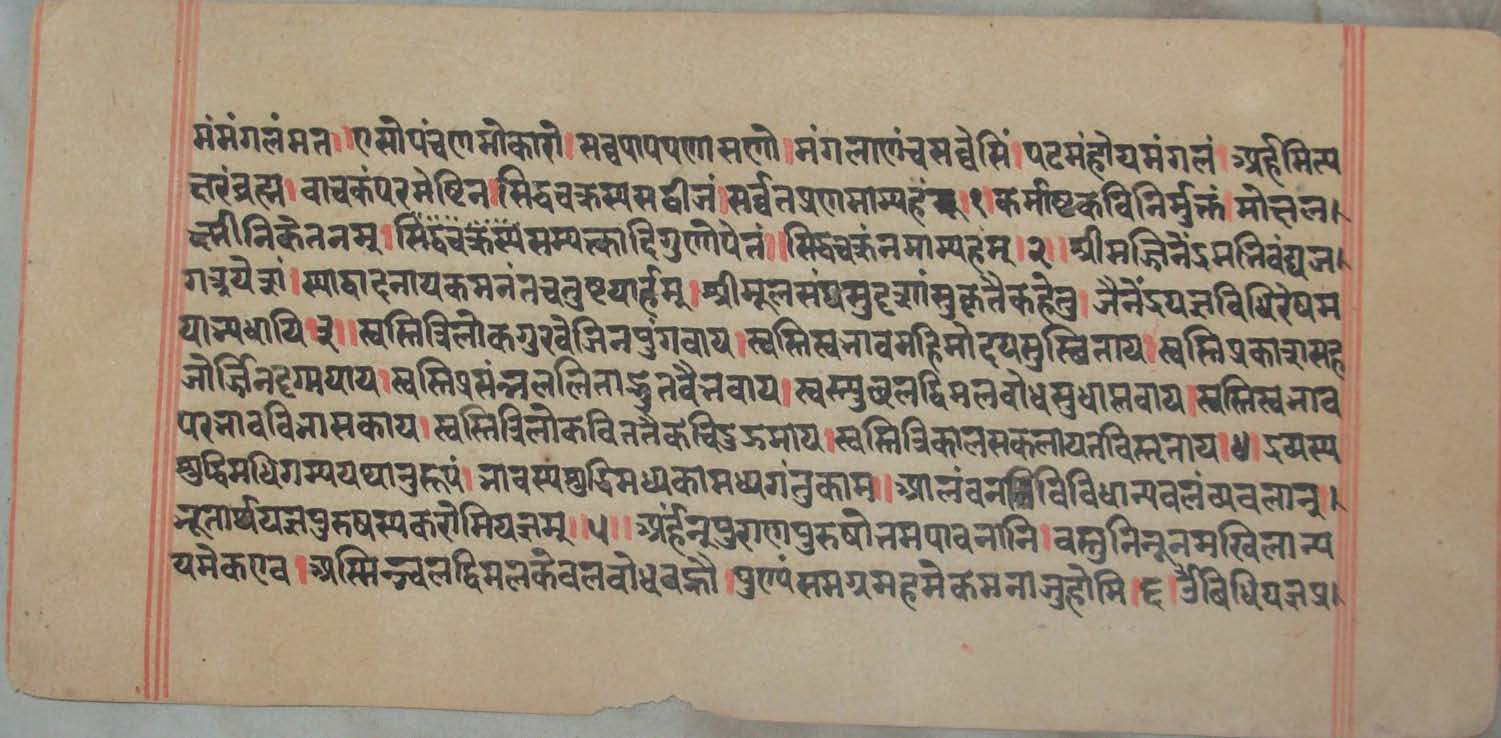 मंमंगलंमत।एसोपंचणमोकारो।सव्वपापपणासणो।मंगलाणंचसव्वेसिं।पटमंहोयमंगलं।अर्हमित्य
क्षरंब्रह्म।वाचकंपरमेष्टिन।सिद्धचक्रस्यसद्वीजं।सर्व्वतप्रणमाम्यहं।१।कर्माष्टकविनिर्मुक्तं।मोक्षल।
क्ष्मीनिकेतनम्।सम्यत्कादिगुणोपेतं।।सिद्धचक्रंनमाम्यहम्।२।।श्रीमज्जिनेंद्रमभिवंद्यज।
गत्रयेशं।स्याद्वादनायकमनंतचतुष्टयार्हम्।श्रीमूलसंघसुदृशांसुकृतैकहेतु।जैनेंद्रयज्ञविधिरेषम
याभ्यधायि।३।।स्वस्तित्रिलोकगुरवेजिनपुंगवाय।स्वस्तिस्वभावमहिमोदयसुस्थिताय।स्वस्तिप्रकाशसह
जोर्ज्जितदृग्मयाय।स्वस्तिप्रसंन्नललिताद्भुतवैभवाय।स्वस्त्युछलद्विमलवोधसुधाप्लवाय।स्वस्तिस्वभाव
परभावविभासकाय।स्वस्तित्रिलोकविततैकचिदुद्गमाय।स्वस्तित्रिकालसकलायतविस्तृताय।४।द्रव्यस्य
शुद्धिमधिगम्ययथानुरूपं।भावस्यशुद्धिमध्यकामध्यगंतुकाम।।आलंवनविविधान्यवलंव्यवलान्।
भूतार्थयज्ञपुरुषस्यकरोमियज्ञम्।।५।।अर्हन्पुराणपुरुषोत्तमपावनानि।वस्तुनिनूनमखिलान्य
यमेकएव।अस्मिन्ज्वलद्विमलकेवलवोधवह्नौ।पुण्यंसमग्रमहमेकमनाजुहोमि।६।विधियज्ञप्र।